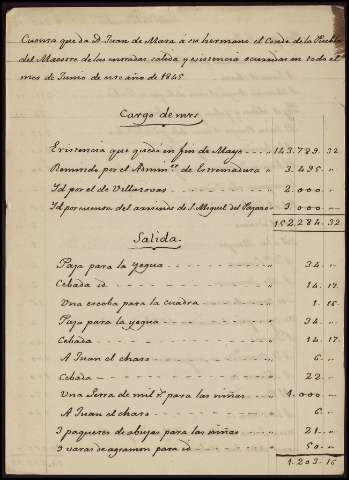 Cuenta que da D. Juan de Mata á su hermano el Conde de la Puebla
del Maestre de las entradas salida y existencia ocurridas en todo el
mes de Junio de este año de 1845
Cargo de mrs
Existencia que quedó en fin de Mayo 143.789. 32
Remitido por el Admin.or de Estremadura " 3.495. "
Yd por el de Villarosas " 2.000. "
Yd por cuenta del arriendo de S. Miguel del " 3.000. "
152.284. 32
Salida
Paja para la yegua " 34. "
Cebada id " 14. 17.
Una escoba para la cuadra " 1. 16.
Paja para la yegua " 34. "
Cebada " 14. 17.
A Juan el charo " 6. "
Cebada " 22. "
Una de mil r.s para las niñas 1.000 "
A Juan el charo " 6. "
3 paquetes de abujas para las niñas " 21. "
9 varas de agraman para id " 50. "
1.203. 16